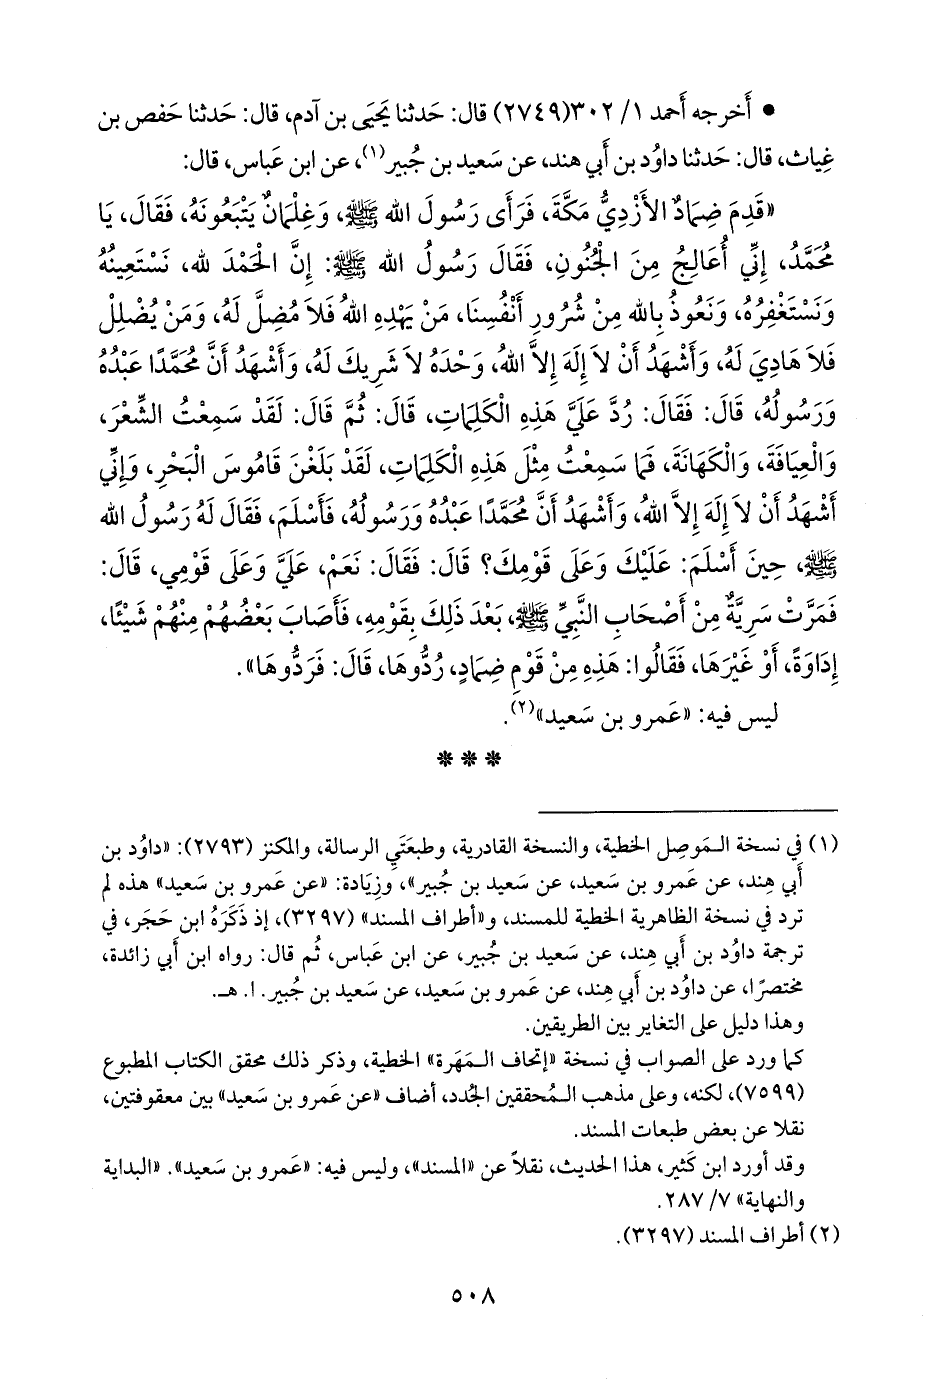 • أَخرجه أَحمد ١/ ٣٠٢(٢٧٤٩) قال: حَدثنا يَحيَى بن آدم، قال: حَدثنا حَفص بن
غِياث، قال: حَدثنا داوُد بن أَبي هند، عن سَعيد بن جُبير(١)، عن ابن عَباس، قال:
«قَدِمَ ضِمَادٌ الأَزْدِيُّ مَكَّةَ، فَرَأَى رَسُولَ الله ﷺ، وَغِلْمَانٌ يَتْبَعُونَهُ، فَقَالَ، يَا
مُحَمَّدُ، إِنِّي أُعَالِجُ مِنَ الْجُنُونِ، فَقَالَ رَسُولُ الله ﷺ: إِنَّ الْحَمْدَ لله، نَسْتَعِينُهُ
وَنَسْتَغْفِرُهُ، وَنَعُوذُ بِالله مِنْ شُرُورِ أَنْفُسِنَا، مَنْ يَهْدِهِ اللهُ فَلاَ مُضِلَّ لَهُ، وَمَنْ يُضْلِلْ
فَلاَ هَادِيَ لَهُ، وَأَشْهَدُ أَنْ لاَ إِلَهَ إِلاَّ اللهُ، وَحْدَهُ لاَ شَرِيكَ لَهُ، وَأَشْهَدُ أَنَّ مُحَمَّدًا عَبْدُهُ
وَرَسُولُهُ، قَالَ: فَقَالَ: رُدَّ عَلَيَّ هَذِهِ الْكَلِمَاتِ، قَالَ: ثُمَّ قَالَ: لَقَدْ سَمِعْتُ الشِّعْرَ،
وَالْعِيَافَةَ، وَالْكَهَانَةَ، فَمَا سَمِعْتُ مِثْلَ هَذِهِ الْكَلِمَاتِ، لَقَدْ بَلَغْنَ قَامُوسَ الْبَحْرِ، وَإِنِّي
أَشْهَدُ أَنْ لاَ إِلَهَ إِلاَّ اللهُ، وَأَشْهَدُ أَنَّ مُحَمَّدًا عَبْدُهُ وَرَسُولُهُ، فَأَسْلَمَ، فَقَالَ لَهُ رَسُولُ الله
ﷺ، حِينَ أَسْلَمَ: عَلَيْكَ وَعَلَى قَوْمِكَ؟ قَالَ: فَقَالَ: نَعَمْ، عَلَيَّ وَعَلَى قَوْمِي، قَالَ:
فَمَرَّتْ سَرِيَّةٌ مِنْ أَصْحَابِ النَّبِيِّ ﷺ، بَعْدَ ذَلِكَ بِقَوْمِهِ، فَأَصَابَ بَعْضُهُمْ مِنْهُمْ شَيْئًا،
إِدَاوَةً، أَوْ غَيْرَهَا، فَقَالُوا: هَذِهِ مِنْ قَوْمِ ضِمَادٍ، رُدُّوهَا، قَالَ: فَرَدُّوهَا».
ليس فيه: «عَمرو بن سَعيد»(٢).
* * *
(١) في نسخة الـمَوصِل الخطية، والنسخة القادرية، وطبعَتَي الرسالة، والمكنز (٢٧٩٣): «داوُد بن
أَبي هِند، عن عَمرو بن سَعيد، عن سَعيد بن جُبير»، وزيَادة: «عن عَمرو بن سَعيد» هذه لم
ترد في نسخة الظاهرية الخطية للمسند، و«أطراف المسند» (٣٢٩٧)، إذ ذَكَرَهُ ابن حَجَر، في
ترجمة داوُد بن أَبي هِند، عن سَعيد بن جُبير، عن ابن عَباس، ثُم قال: رواه ابن أَبي زائدة،
مختصرًا، عن داوُد بن أَبي هِند، عن عَمرو بن سَعيد، عن سَعيد بن جُبير. ا. هـ.
وهذا دليل على التغاير بين الطريقين.
كما ورد على الصواب في نسخة «إتحاف الـمَهَرة» الخطية، وذكر ذلك محقق الكتاب المطبوع
(٧٥٩٩)، لكنه، وعلى مذهب الـمُحققين الجُدد، أضاف «عن عَمرو بن سَعيد» بين معقوفتين،
نقلا عن بعض طبعات المسند.
وقد أورد ابن كَثير، هذا الحديث، نقلاً عن «المسند»، وليس فيه: «عَمرو بن سَعيد». «البداية
والنهاية» ٧/ ٢٨٧.
(٢) أطراف المسند (٣٢٩٧).
٥٠٨